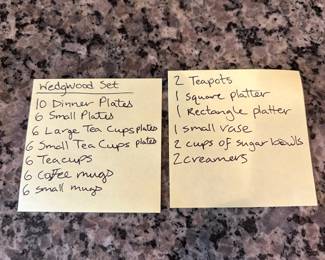 Wedgwood Set
10 Dinner Plates
6 Small Plates
6 Large Tea Cups plates
6 Small Tea Cups plates
6 Teacups
6 Coffee mugs
6 small mugs
2 Teapots
1 square platter
1 Rectangle platter
1 small vase
2 cups of sugar bowls
2 creamers